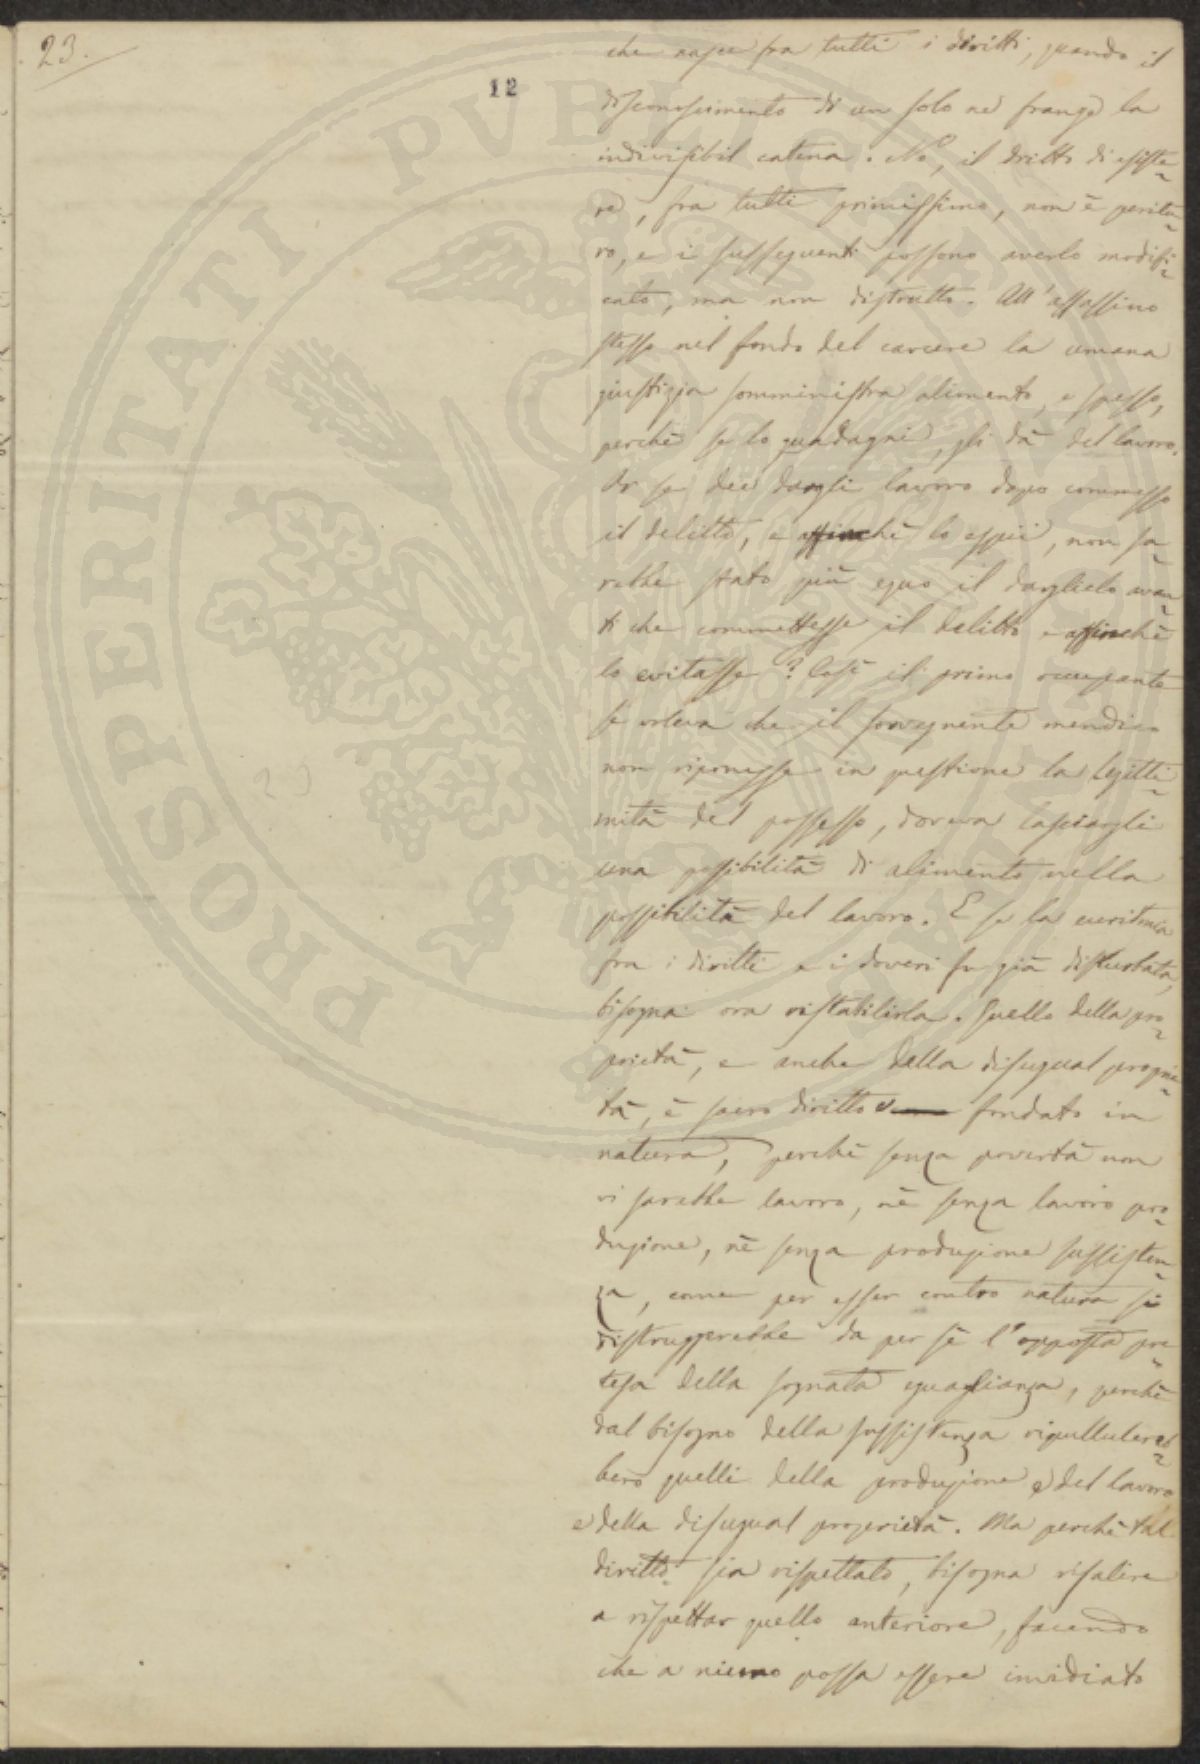 23.
12
che nasce fra tutti i diritti, quando il
disconoscimento di un solo ne frange la
indivisibil catena. No, il dritto di esiste-
re, fra tutti primissimo, non è peritu-
ro, e i susseguenti possono averlo modifi-
cato, ma non distrutto. All'assassino
stesso nel fondo del carcere la umana
giustizia somministra alimento, e spesso,
perchè se lo guadagni, gli dà del lavoro.
Or se dee dargli lavoro dopo commesso
il delitto, e affinchè lo espii, non sa-
rebbe stato più equo il darglielo avan-
ti che commettesse il delitto e affinchè
lo evitasse? Così il primo occupante
se voleva che il sovvegnente mendico
non riponesse in questione la legitti-
mità del possesso, doveva lasciargli
una possibilità di alimento nella
possibilità del lavoro. E se la euritmia
fra i diritti e i doveri fu già disturbata,
bisogna ora ristabilirla. Quello della pro-
prietà, e anche della disugual proprie-
tà, è sacro diritto fondato in
natura, perchè senza povertà non
vi sarebbe lavoro, nè senza lavoro pro-
duzione, nè senza produzione sussisten-
za, come per esser contro natura si
distruggerebbe da per sè l'opposta pre-
tesa della sognata eguaglianza, perchè
dal bisogno della sussistenza ripullulereb-
bero quelli della produzione e del lavoro
e della disugual proprietà. Ma perchè tal
diritto sia rispettato, bisogna risalire
a rispettar quello anteriore, facendo
che a niuno possa essere invidiato
PROSPERITATI PVBLICAE